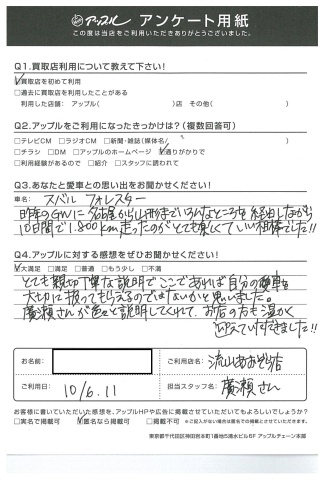 アップル アンケート用紙
この度は当店をご利用いただきありがとうございました。
Q1.買取店利用について教えて下さい!
☑買取店を初めて利用
□過去に買取店を利用したことがある
利用した店舗: アップル( )店 その他( )
Q2.アップルをご利用になったきっかけは?(複数回答可)
□テレビCM □ラジオCM □新聞・雑誌(媒体名/ )
□チラシ □DM □アップルのホームページ ☑通りがかりで
□利用経験があるので □紹介 □スタッフに誘われて
Q3.あなたと愛車との思い出をお聞かせください!
車名: スバル フォレスター
昨年のGWに名古屋から山形までいろんなところを経由しながら
10日間で1,800km走ったのがとても楽しくていい相棒でした!!
Q4.アップルに対する感想をぜひお聞かせください!
☑大満足 □満足 □普通 □もう少し □不満
とても親切丁寧な説明でここであれば自分の愛車も
大切に扱ってもらえるのではないかと思いました。
廣瀬さんが色々と説明してくれて、お店の方も温かく
迎えていただきました!!
お名前:
ご利用店名: 流山おおたか店
ご利用日: 10/6.11
担当スタッフ名: 廣瀬さん
お客様に書いていただいた感想を、アップルHPや広告に掲載させていただいてもよろしいでしょうか?
□実名で掲載可 ☑匿名なら掲載可 □掲載不可 ※ご記入がない場合は匿名での掲載とさせていただきます。
東京都千代田区神田岩本町1番地5清水ビル6F アップルチェーン本部